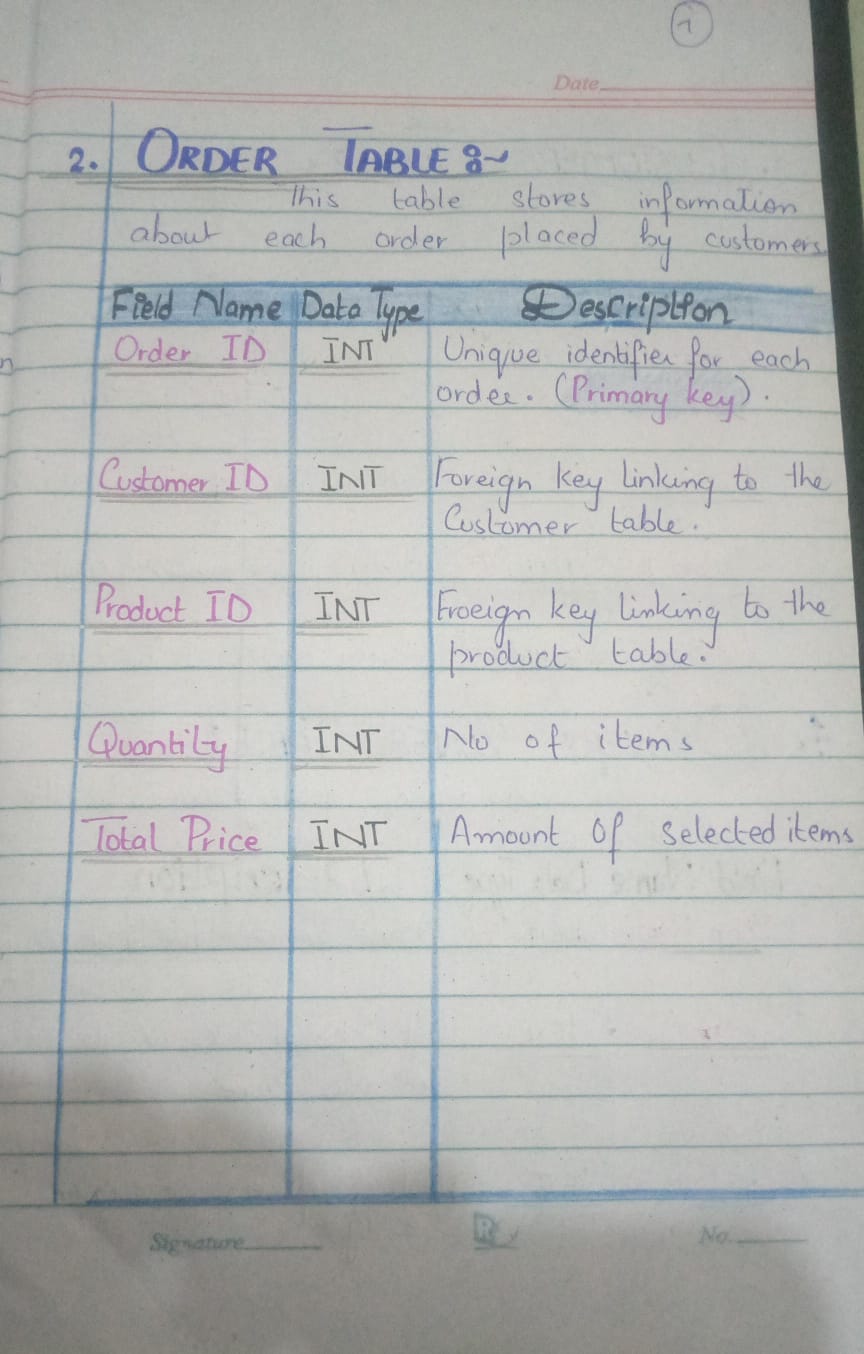 1
Date
2. ORDER TABLE :~
This table stores information
about each order placed by customers
Field Name Data Type Description
Order ID INT Unique identifier for each
order. (Primary key).
Customer ID INT Foreign key linking to the
Customer table.
Product ID INT Froeign key linking to the
product table.
Quantity INT No of items
Total Price INT Amount of selected items
Signature R No.